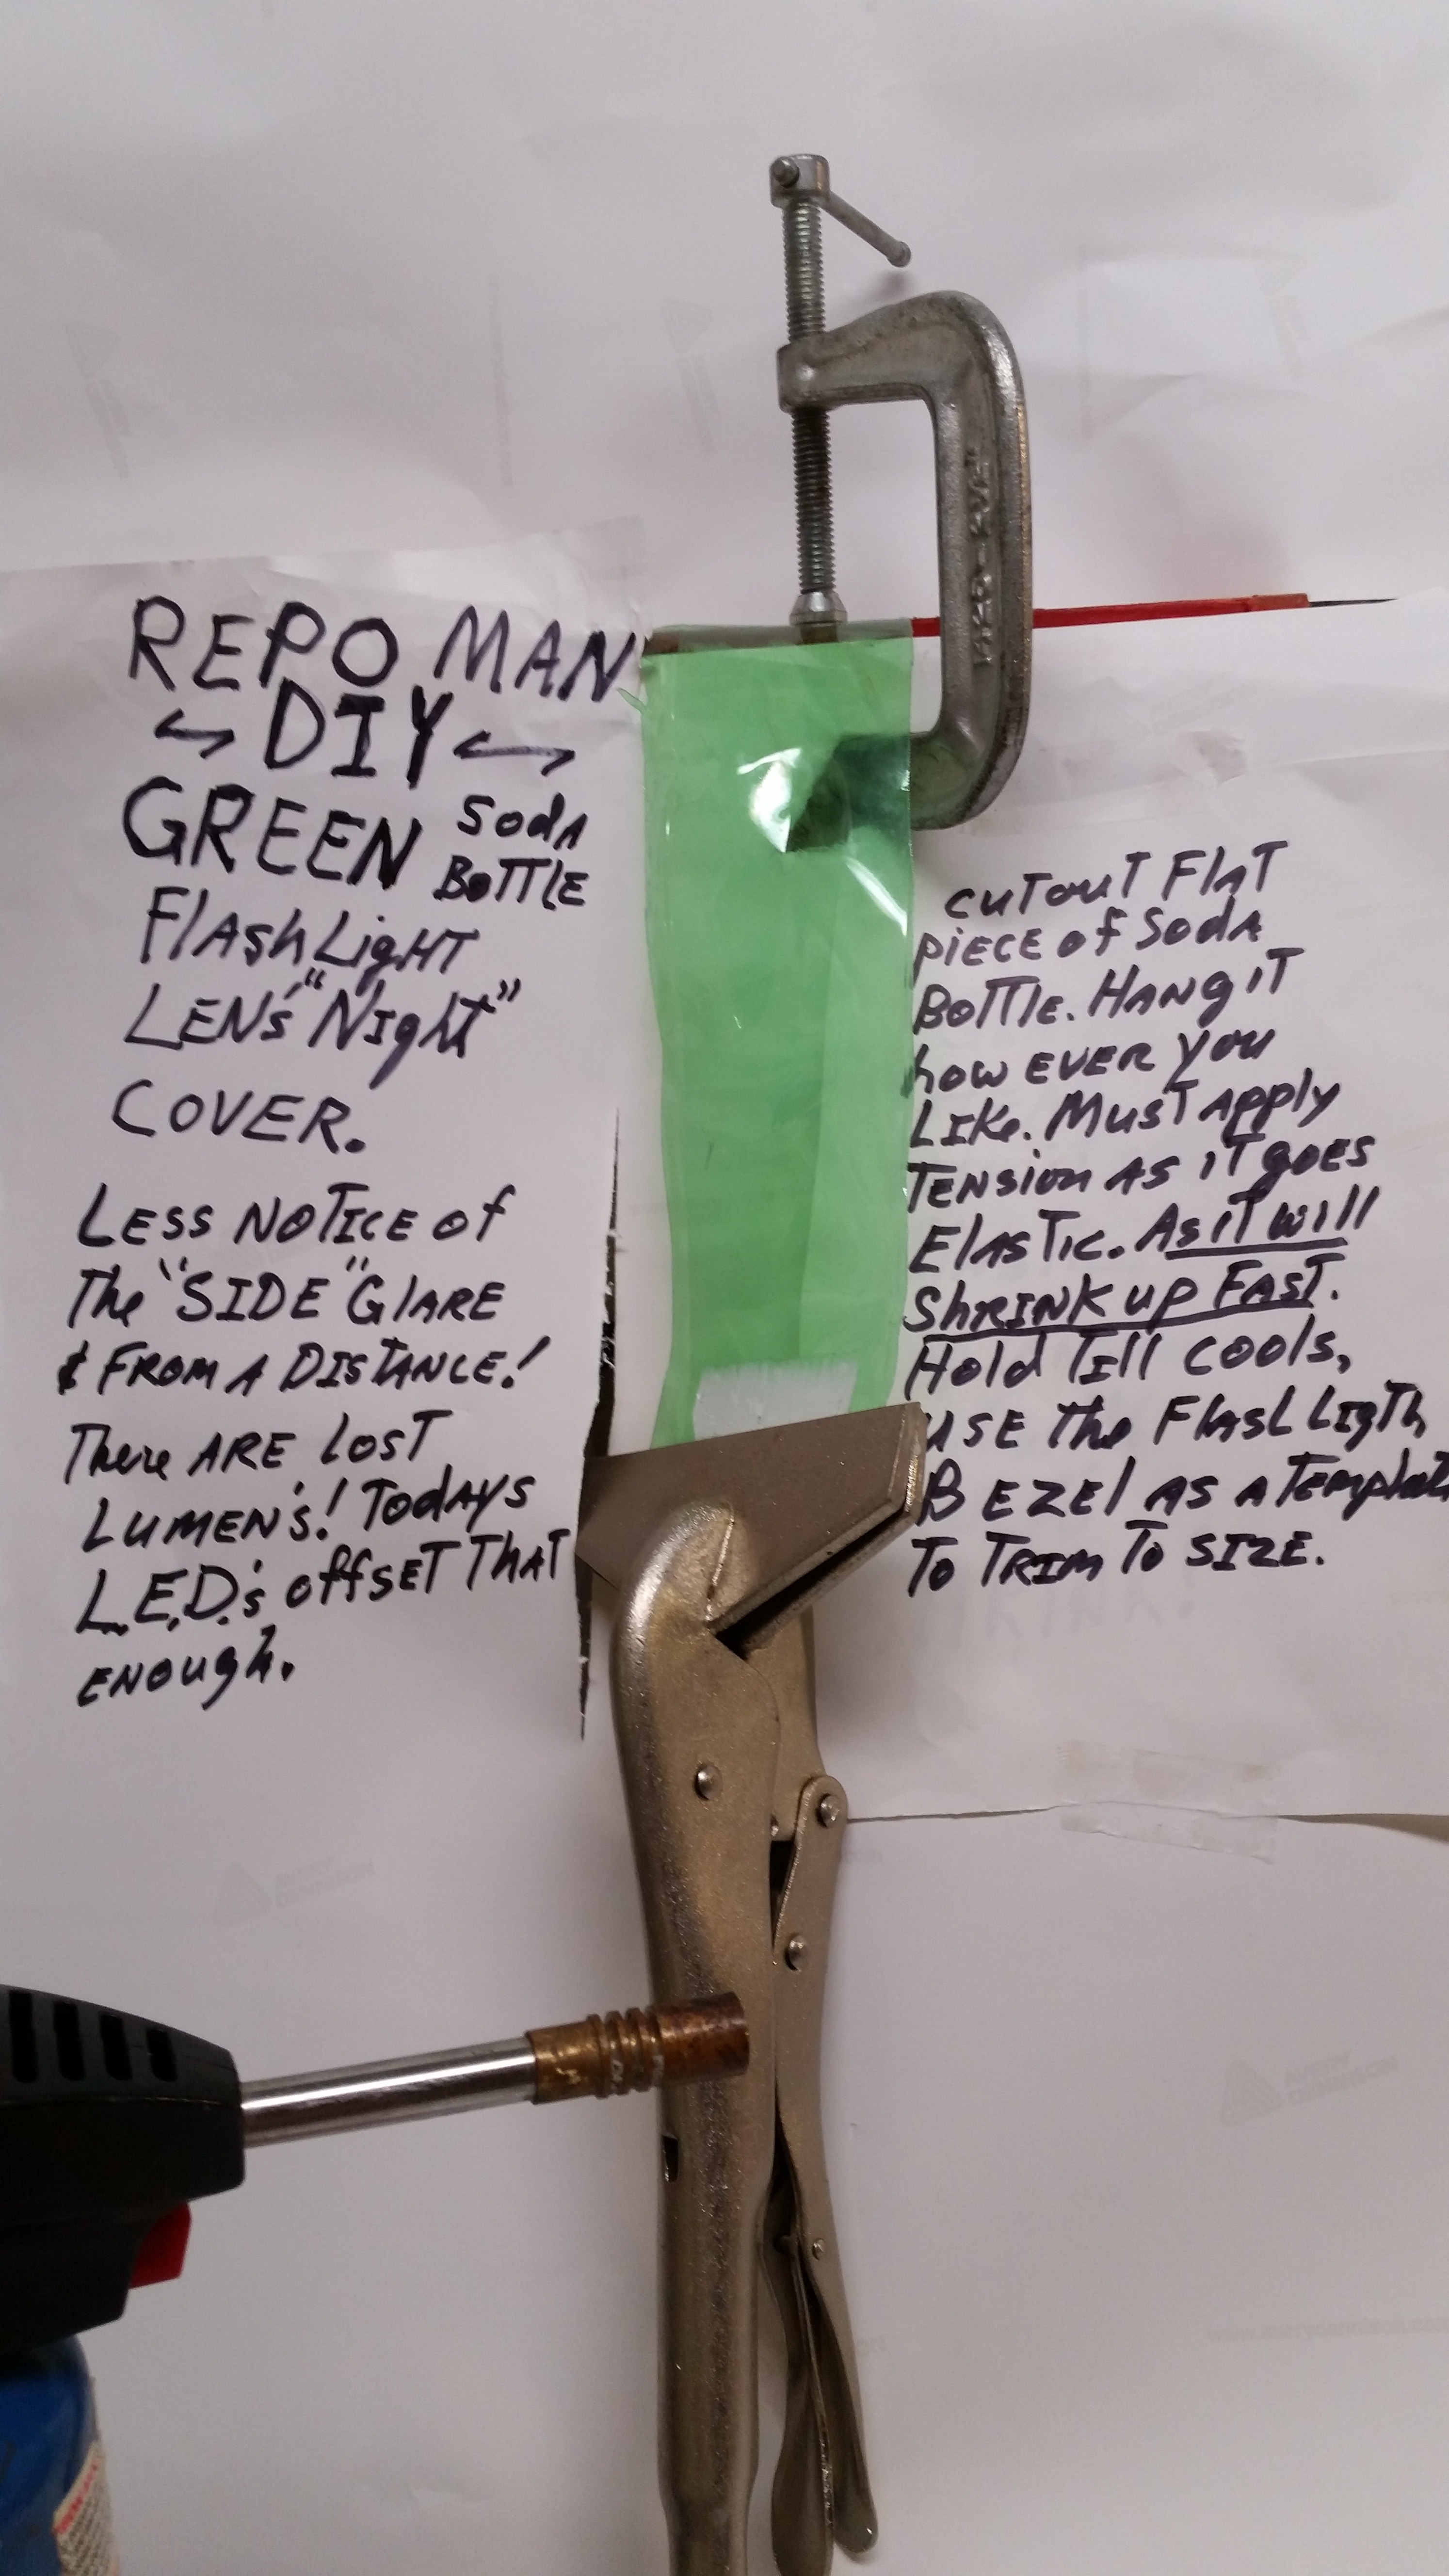 REPO MAN
DIY
GREEN Soda
BoTTlE
FlAshLight
LENS' "NIght"
COVER.
LESS NoTICE of
The "SIDE" GlARE
& FROM A DISTANCE!
There ARE LOST
LUMENS. / TodAYS
L.E.D.'s offSET THAT
ENOUgh.
CuTouT FlaT
pIECE of SodA
BoTTlE. HANg iT
howEVER You
LIKE. MusT Apply
TENSIon AS iT goES
ElAsTic. As iT will
ShRINK up FAST.
Hold TIll cools,
USE The FlAShLIgTh
BEZEl AS A TEmplaT
To TRIm To SIZE.
1420-2 1/2"